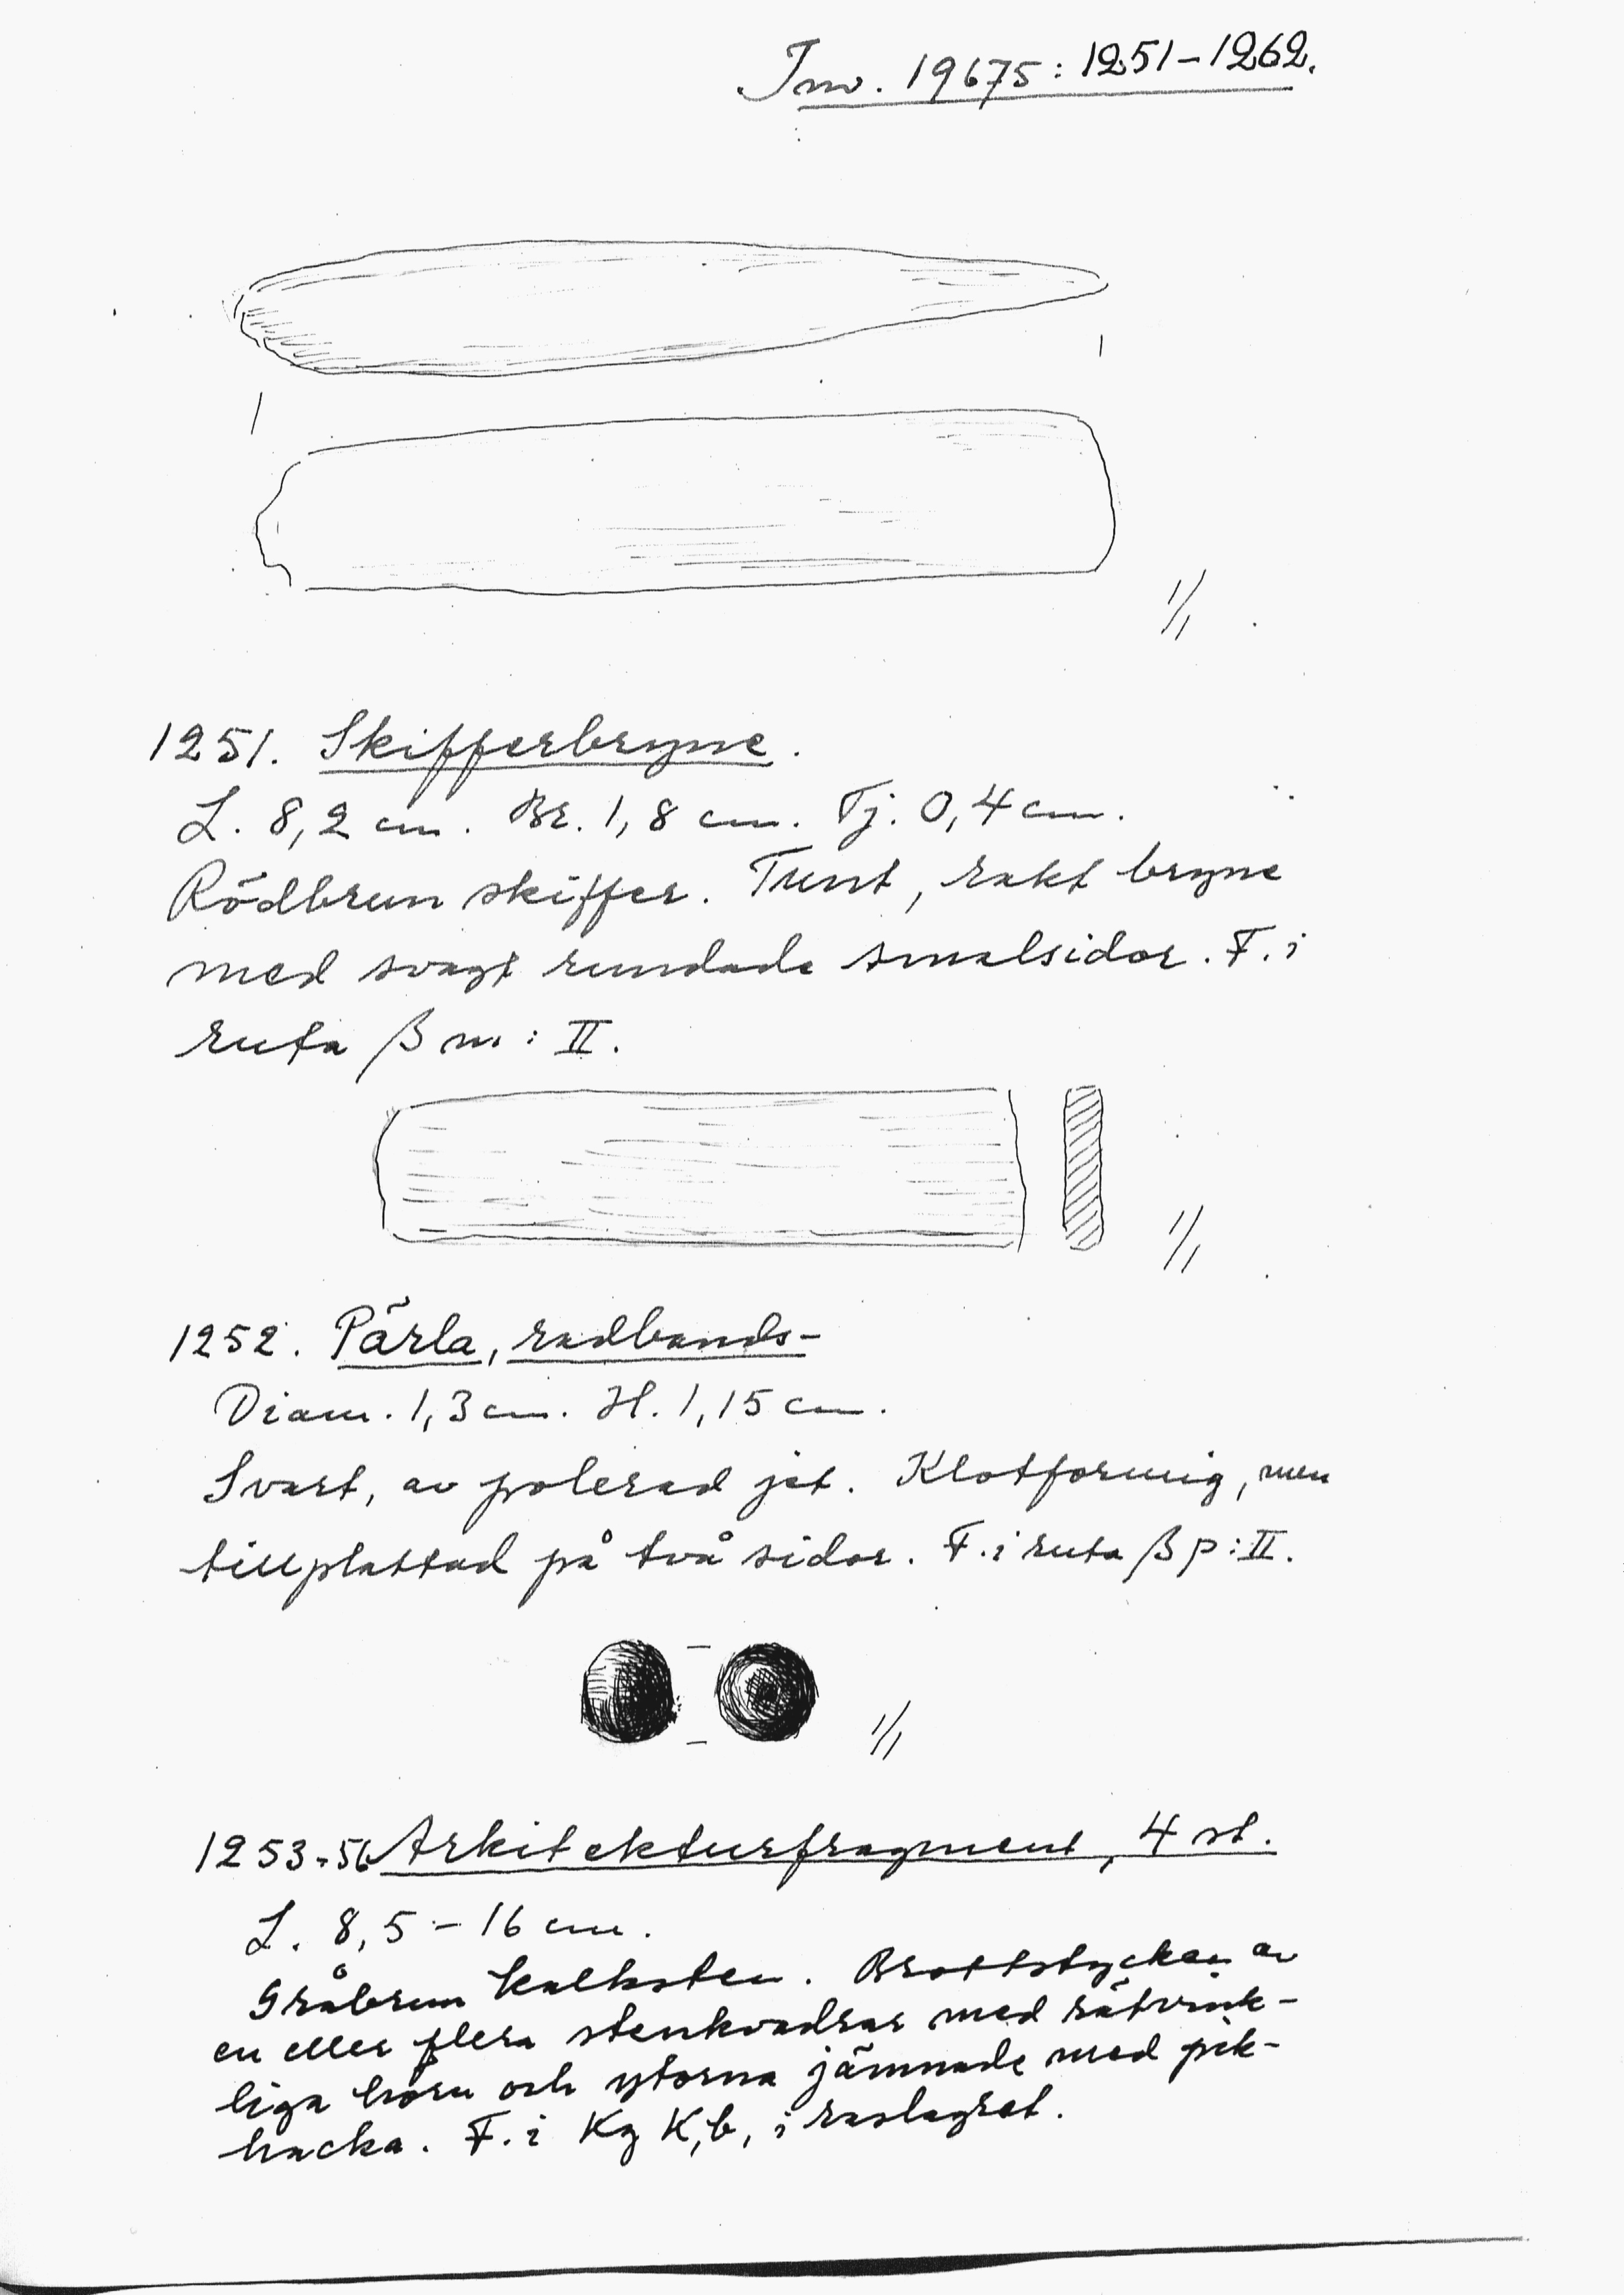 Inv. 19675: 1251-1262.
1/1
1251. Skifferbryne.
L. 8,2 cm. Br. 1,8 cm. Tj. 0,4 cm.
Rödbrun skiffer. Tunt, rakt bryne
med svagt rundade smalsidor. F. i
ruta β m: II.
1/1
1252. Pärla, radbands-
Diam. 1,3 cm. H. 1,15 cm.
Svart, av polerad jet. Klotformig, men
tillplattad på två sidor. F. i ruta β p: II.
1/1
1253-56 Arkitekturfragment, 4 st.
L. 8,5 - 16 cm.
Gråbrun kalksten. Brottstycken av
en eller flera stenkvadrar med rätvink-
liga hörn och ytorna jämnade med pik-
hacka. F. i Kg K,b, i raslagret.